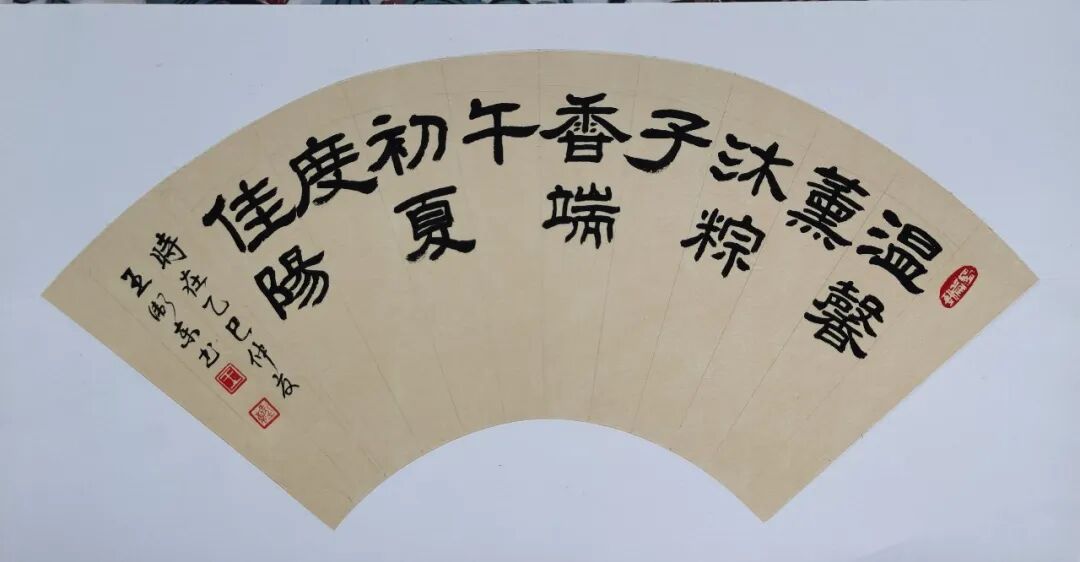 温馨
薰
沐粽
子
香端
午
初夏
度
佳陽
時在乙巳仲夏
王衛東书